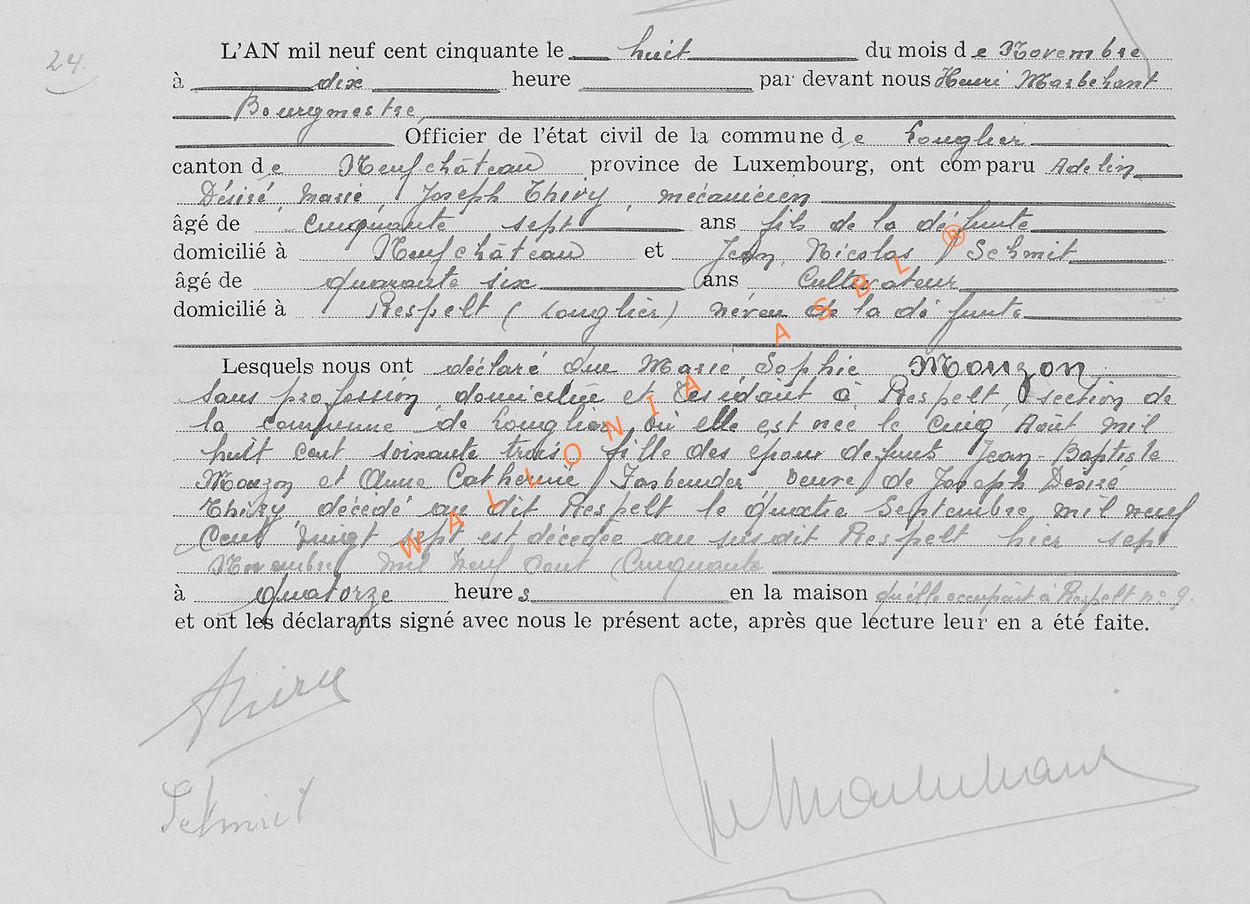 24.
L'AN mil neuf cent cinquante le huit du mois de Novembre
à dix heure par devant nous Henri Marbehant
Bourgmestre,
Officier de l'état civil de la commune de Longlier
canton de Neufchâteau province de Luxembourg, ont comparu Adelin
Désiré, Marie, Joseph Thiry, mécanicien
âgé de Cinquante sept ans fils de la défunte
domicilié à Neufchâteau et Jean, Nicolas Schmit
âgé de quarante six ans Cultivateur
domicilié à Respelt (Longlier) neveu de la défunte
Lesquels nous ont déclaré que Marie, Sophie Mouzon
sans profession domiciliée et résidant à Respelt, section de
la commune de Longlier, où elle est née le Cinq Août mil
huit cent soixante trois fille des époux défunts Jean-Baptiste
Mouzon et Anne Catherine Fasbender veuve de Joseph Désiré
Thiry décédé au dit Respelt le quatre Septembre mil neuf
Cent vingt sept est décédée au susdit Respelt hier sept
Novembre mil neuf cent Cinquante
à quatorze heures en la maison qu'elle occupait à Respelt n° 9.
et ont les déclarants signé avec nous le présent acte, après que lecture leur en a été faite.
Thiry
Schmit
WALLONIA ASBL ®